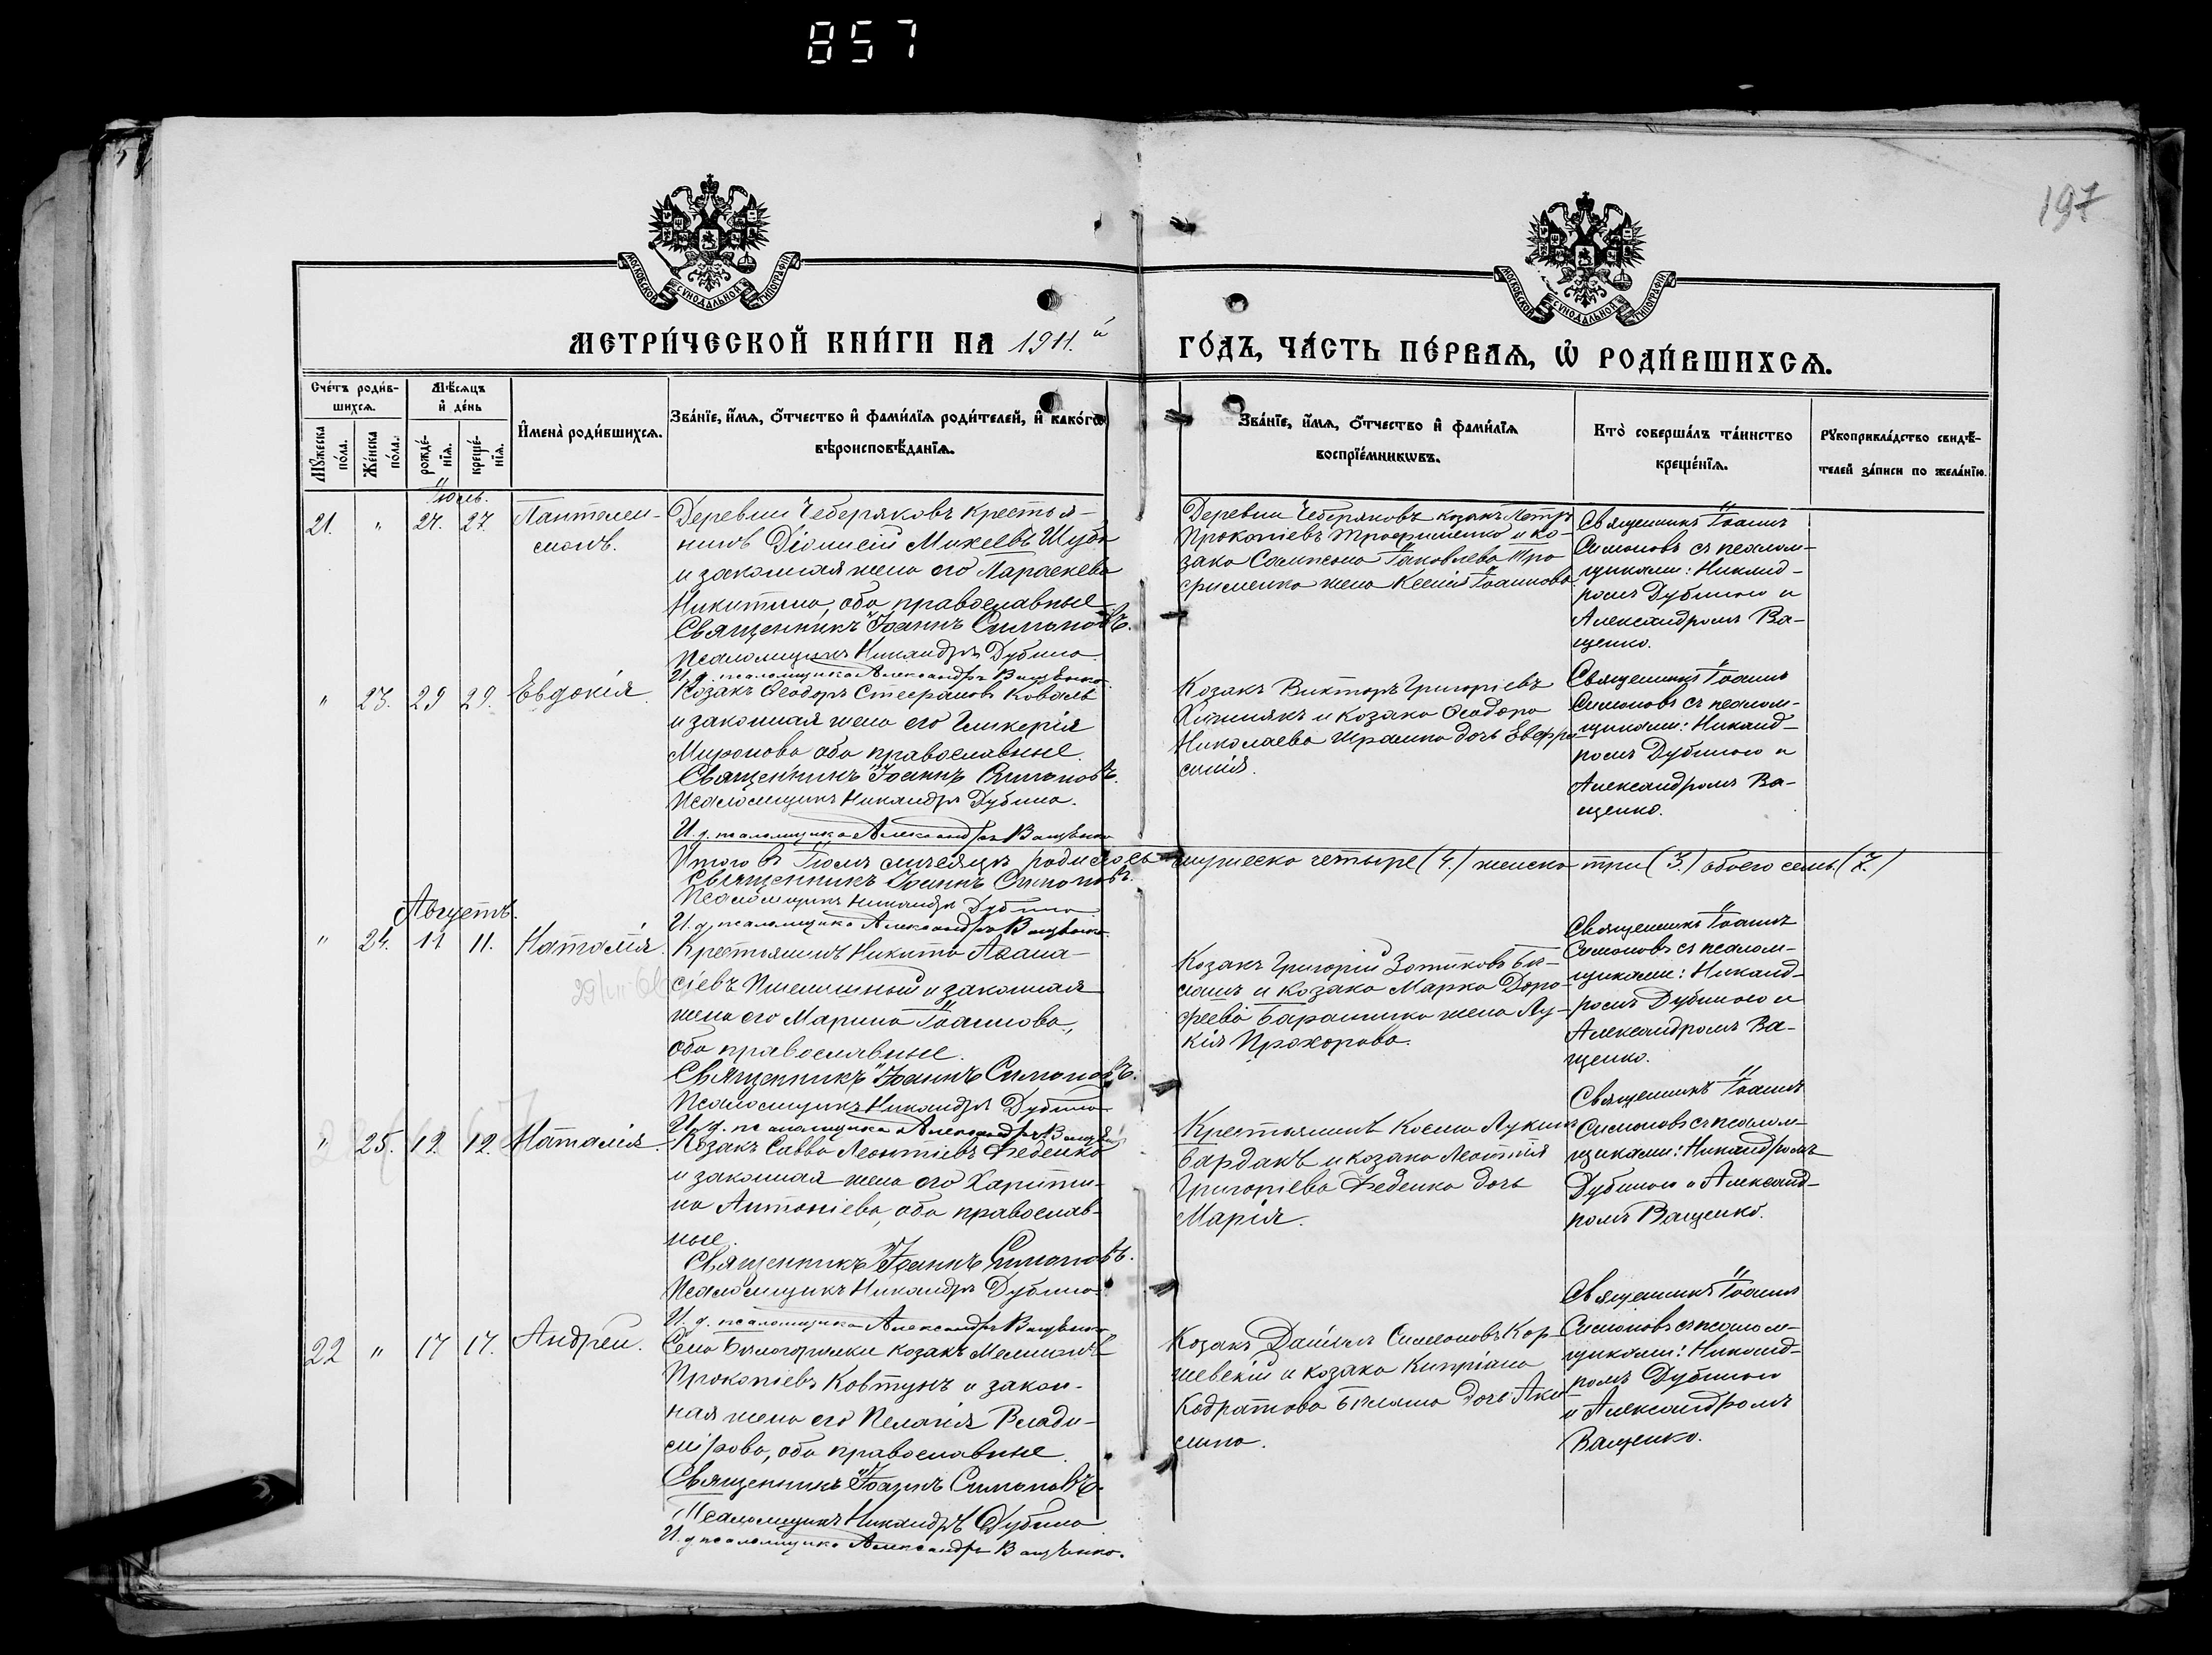 857
197
МОСКОВСКОЙ СѴНОДАЛЬНОЙ ТИПОГРАФІИ
МОСКОВСКОЙ СѴНОДАЛЬНОЙ ТИПОГРАФІИ
МЕТРИ́ЧЕСКОЙ КНИ́ГИ НА 1911.й
ГО́ДЪ, ЧА́СТЬ ПЕ́РВАЯ, Ѡ҆ РОДИ́ВШИХСЯ.
Сче́тъ роди́в-
шихся.
Мѣ́сяцъ
и҆ де́нь
Мꙋ́жеска по́ла.
Же́нска по́ла.
рожде́-
нїя.
креще́-
нїя.
И҆мена̀ роди́вшихся.
Зва́нїе, и҆́мя, ѻ҆́тчество и҆ фами́лїя роди́телей, и҆ како́гѡ
вѣроисповѣ́данїя.
Зва́нїе, и҆́мя, ѻ҆́тчество и҆ фами́лїя
воспрїе́мникѡвъ.
Кто̀ соверша́лъ та́инство
креще́нїя.
Рꙋкоприкла́дство свидѣ́-
телей за́писи по жела́нїю.
Іюль.
21. " 27. 27. Пантелеи-
монъ.
Деревни Чеберяковъ крестья-
нинъ Діонисій Михеевъ
и законная жена его Параскева
Никитина, оба православные
Священникъ Іоаннъ Симоновъ.
Псаломщикъ Никандръ Дубина.
И. д. псаломщика Александръ Ващенко.
Деревни Чеберяковъ козакъ Петръ
Прокопіевъ Трофименко и ко-
зака Сампсона Іаковлева Тро-
фименка жена Ксенія Іоаннова.
Священникъ Іоаннъ
Симоновъ съ псалом-
щиками: Никанд-
ромъ Дубиною и
Александромъ Ва-
щенко.
" 23. 29 29. Евдокія.
Козакъ Ѳеодоръ Стефановъ Коваль
и законная жена его Гликерія
Миронова оба православные.
Священникъ Іоаннъ Симоновъ.
Псаломщикъ Никандръ Дубина.
И. д. псаломщика Александръ Ващенко
Козакъ Викторъ Григоріевъ
и козака Ѳеодора
Николаева дочь Евфро-
синія.
Священникъ Іоаннъ
Симоновъ съ псалом-
щиками: Никанд-
ромъ Дубиною и
Александромъ Ва-
щенко.
Итого въ Іюлѣ мѣсяцѣ родилось мужеска четыре (4.) женска три (3.) обоего семь (7.)
Священникъ Іоаннъ Симоновъ.
Псаломщикъ Никандръ Дубина
И. д. псаломщика Александръ Ващенко.
Августъ.
" 24. 11 11. Наталія.
Крестьянинъ Никита Аѳана-
сіевъ Пшеничный и законная
жена его Марина Іоаннова,
оба православные.
Священникъ Іоаннъ Симоновъ.
Псаломщикъ Никандръ Дубина
И. д. псаломщика Александръ Ващенко
Козакъ Григорій Зотиковъ
и козака Марка Доро-
феева жена Лу-
кія Прохорова.
Священникъ Іоаннъ
Симоновъ съ псалом-
щиками: Никанд-
ромъ Дубиною и
Александромъ Ва-
щенко.
" 25. 12. 12. Наталія.
Козакъ Савва Леонтіевъ Феденко
и законная жена его Харити-
на Антоніева, оба православ-
ные.
Священникъ Іоаннъ Симоновъ.
Псаломщикъ Никандръ Дубина.
И. д. псаломщика Александръ Ващенко
Крестьянинъ Косма Лукинъ
Бардакъ и козака Леонтія
Григоріева Феденка дочь
Марія.
Священникъ Іоаннъ
Симоновъ съ псалом-
щиками: Никандромъ
Дубиною и Александ-
ромъ Ващенко.
22 " 17 17. Андрей.
Села козакъ
Прокопіевъ Ковтунъ и закон-
ная жена его Пелагія Влади-
мірова, оба православные.
Священникъ Іоаннъ Симоновъ.
Псаломщикъ Никандръ Дубина
И. д. псаломщика Александръ Ващенко.
Козакъ Даніилъ Симеоновъ Кор-
жевскій и козака Кипріана
Кодратова дочь Аки-
лина.
Священникъ Іоаннъ
Симоновъ съ псалом-
щиками: Никанд-
ромъ Дубиною
и Александромъ
Ващенко.